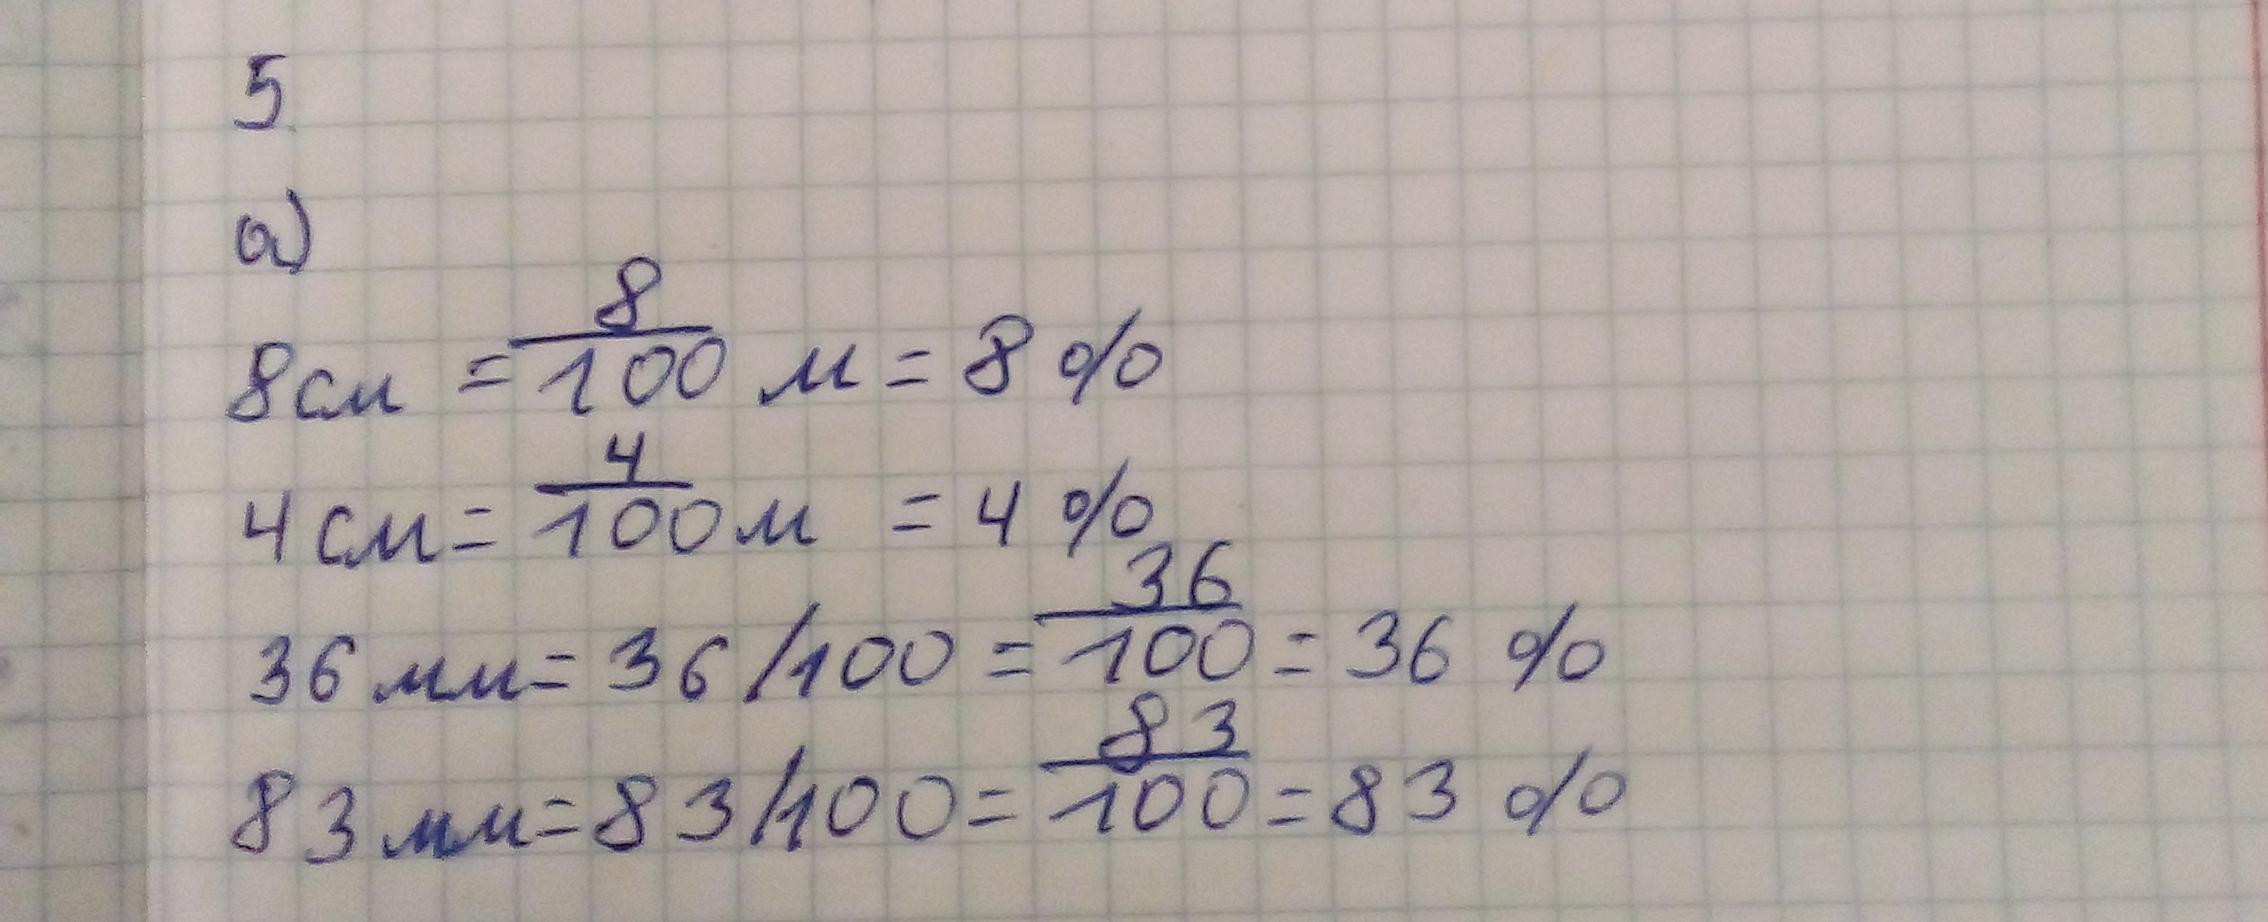 5
а)
8см = 8/100 м = 8 %
4см = 4/100 м = 4 %
36мм = 36/100 = 36/100 = 36 %
83мм = 83/100 = 83/100 = 83 %